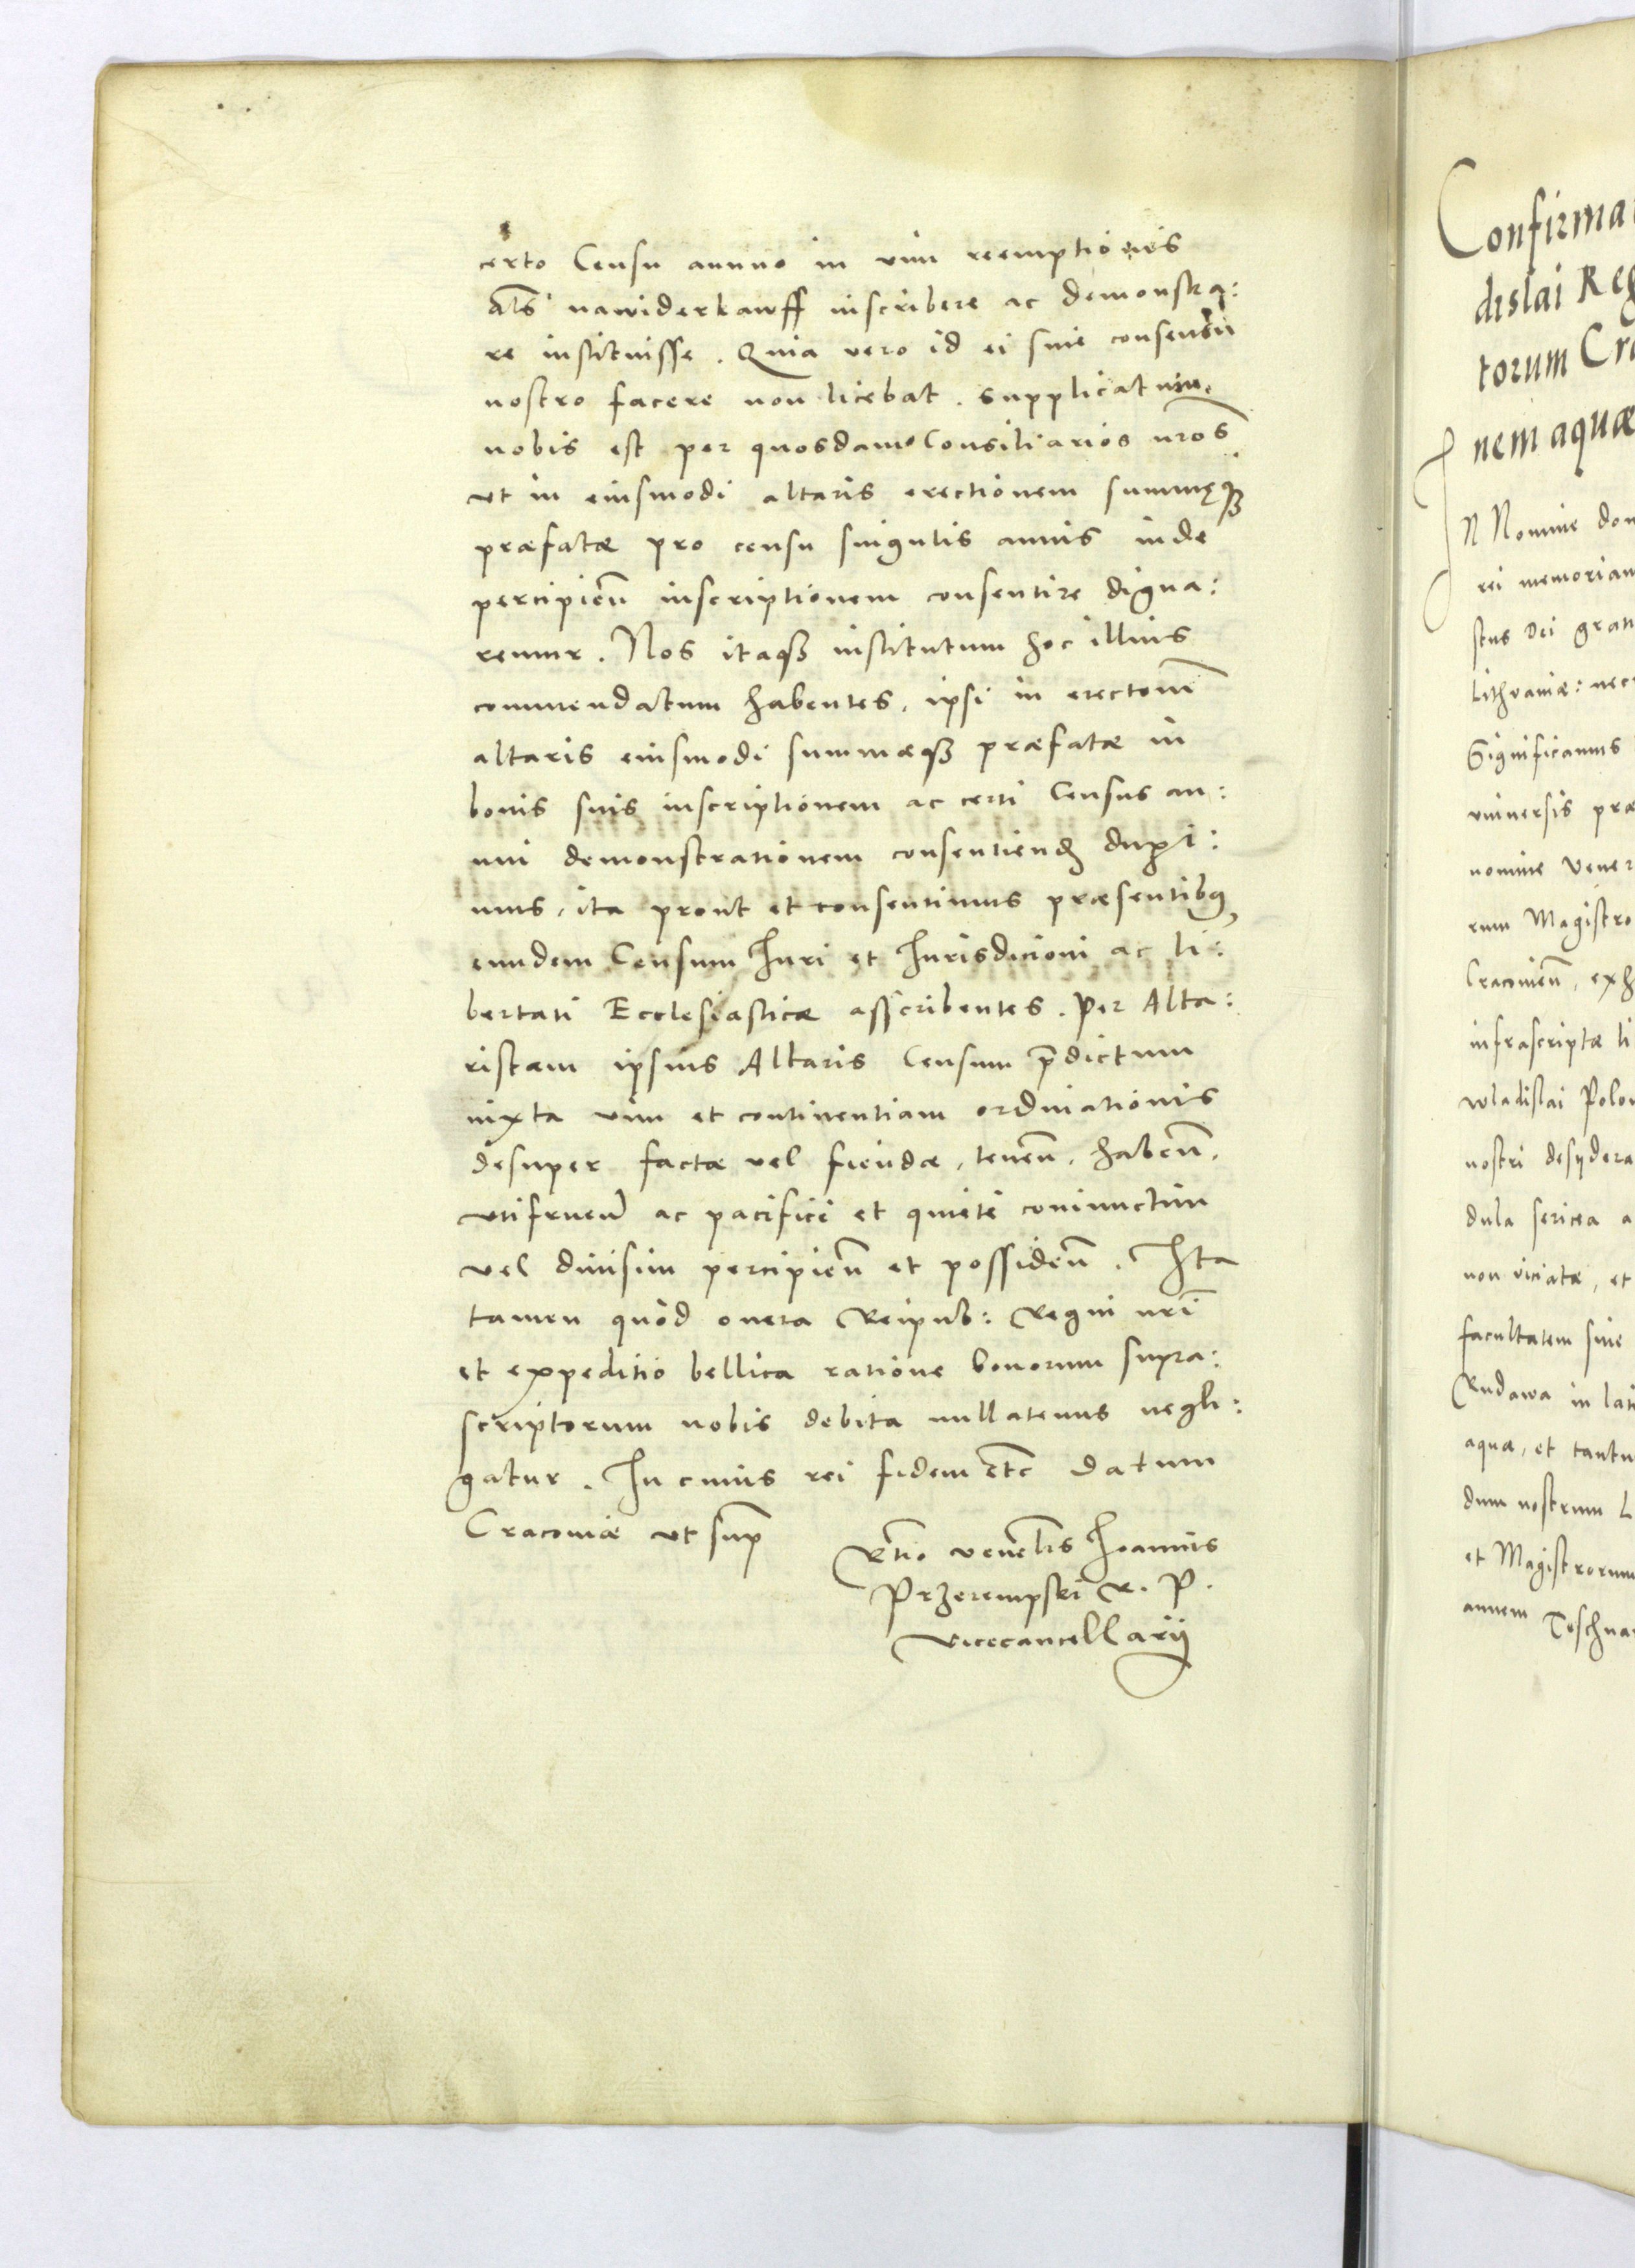 certo Censu annuo in vim reemptionis
al̃s nawiderkawff inscribere ac demonstra:
re instituisse. Quia vero id ei sine consensu
nostro facere non licebat. supplicatum
nobis est per quosdam Consiliarios nr̃os
ut in eiusmodi altaris erectionem summęqꝫ
præfatæ pro censu singulis annis inde
percipien̄ inscriptionem consentire digna:
remur. Nos itaqꝫ institutum hoc illius
commendatum habentes, ipsi in erectonē
altaris eiusmodi summæqꝫ præfatæ in
bonis suis inscriptionem ac certi Census an:
nui demonstrationem consentiend duxi:
mus, ita prout et consentimus præsentibꝯ
eundem Censum Iuri et Iurisdicioni ac li:
bertati Ecclesiasticæ asscribentes. Per Alta:
ristam ipsius Altaris Censum p̄dictum
iuxta vim et continentiam ordinationis
desuper factæ vel fiendæ, tenen̄, haben̄,
utifruen̄ ac pacificè et quietè coniunctim
vel diuisim percipien̄ et possiden̄. Ita
tamen quòd onera Reipub: Regni nr̃i
et expeditio bellica ratione bonorum supra:
scriptorum nobis debita nullatenus negli:
gatur. In cuius rei fidem etc̄ Datum
Cracoviæ ut sup̄
Rt̃io venel̃is Ioannis
Przerempski R. P.
Vicecancellarij
Confirma
dislai Reg
torum Cr
nem aquæ
IN Nomine dom
rei memoriam
stus Dei grati
Lithvaniæ: nec
Significamus
universis præ
nomine Vener
rum Magistro
Cracovien̄, exh
infrascriptæ li
Wladislai Polon
nostri desydera
dula sericea a
non viciatæ, et
facultatem sive
Rudawa in lat
aquæ, et tantu
dum nostrum L
et Magistrorum
annem Teschna